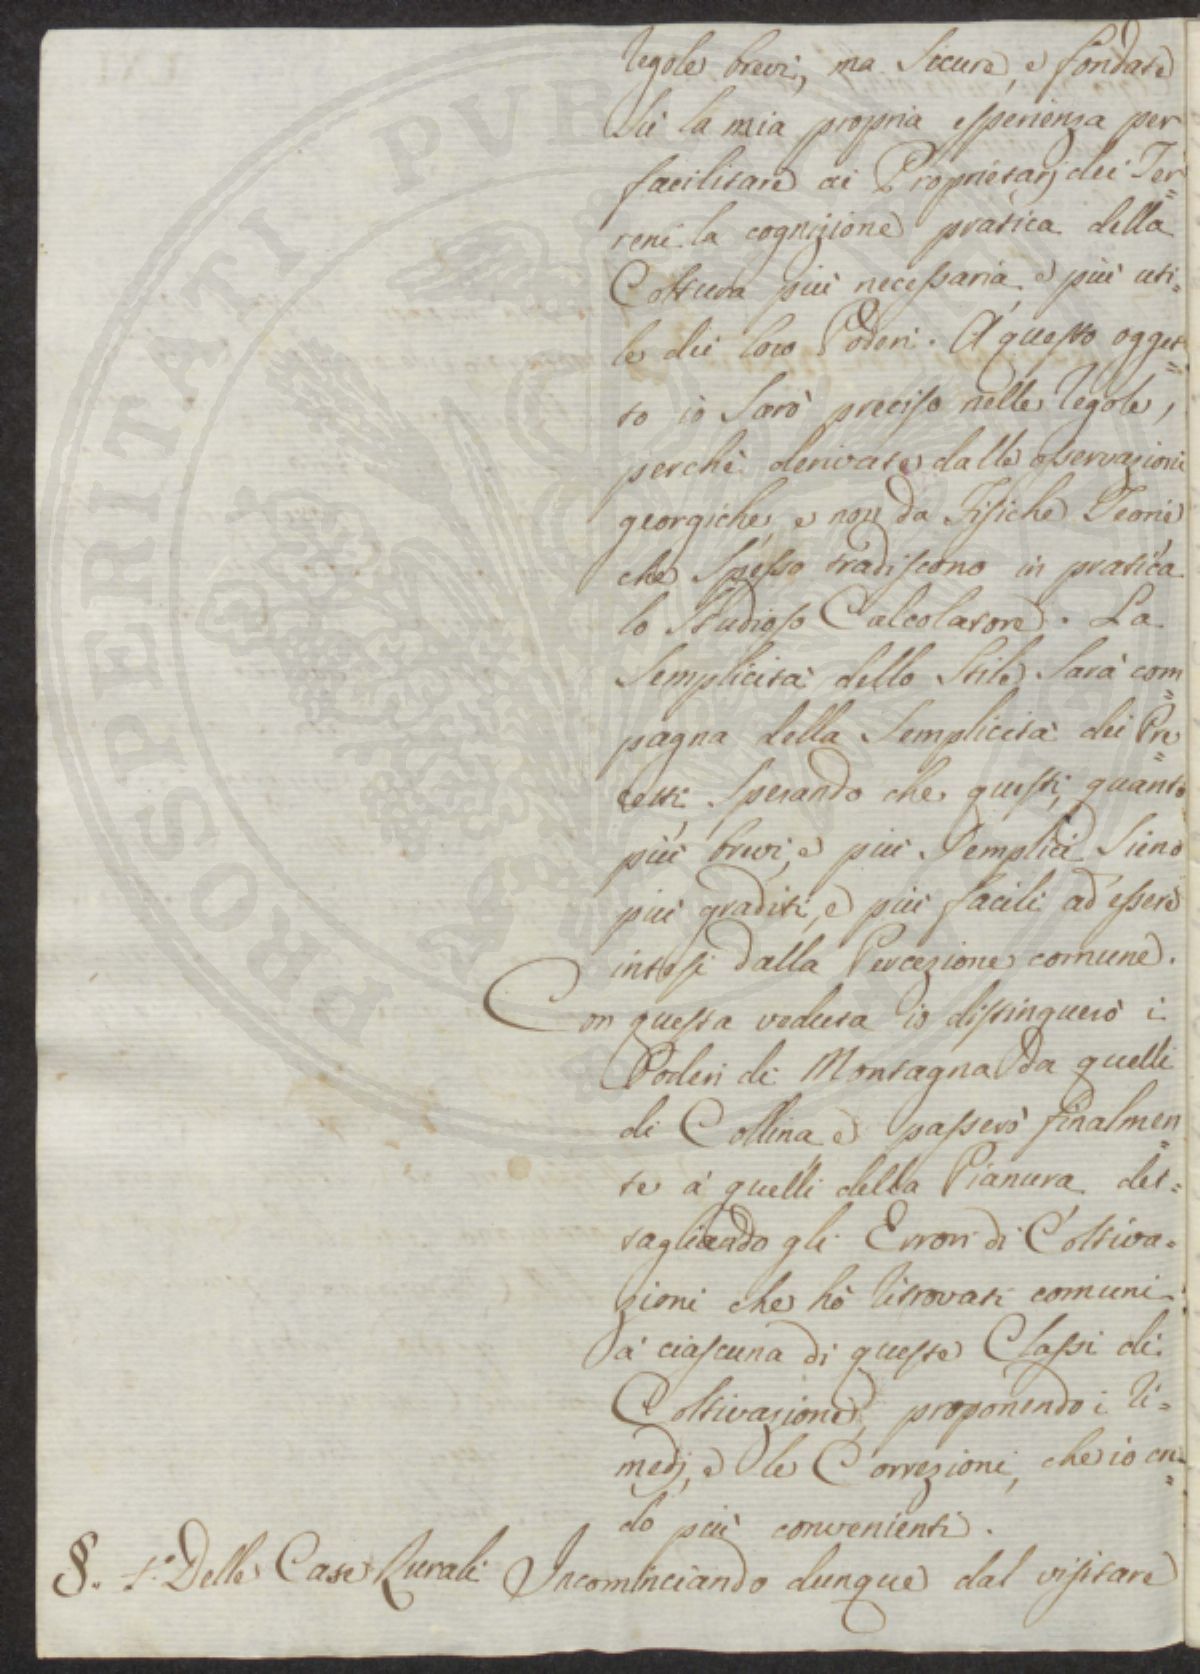 regole brevi, ma sicure, e fondate
sù la mia propria esperienza per
facilitare ai Proprietarj dei Ter=
reni la cognizione pratica della
Coltura più necessaria, e più uti=
le dei loro Poderi. A' questo ogget=
to io sarò preciso nelle regole,
perchè derivate dalle osservazioni
georgiche, e non da Fisiche Teorie
che spesso tradiscono in pratica
lo studioso Calcolatore. La
semplicità dello stile sarà com=
pagna della semplicità dei Pre=
cetti, sperando che questi, quanto
più brevi, e più semplici sieno
più graditi, e più facili ad essere
intesi dalla Percezione comune.
Con questa veduta io distinguerò i
Poderi di Montagna da quelli
di Collina, e passerò finalmen=
te a' quelli della Pianura det=
tagliando gli Errori di Coltiva=
zioni che hò ritrovati comuni
a' ciascuna di queste Classi di
Coltivazione, proponendo i ri=
medj, e le Correzioni, che io cre=
do più convenienti.
§. 1.º Delle Case Rurali Incominciando dunque dal visitare
PROSPERITATI PUBLICAE